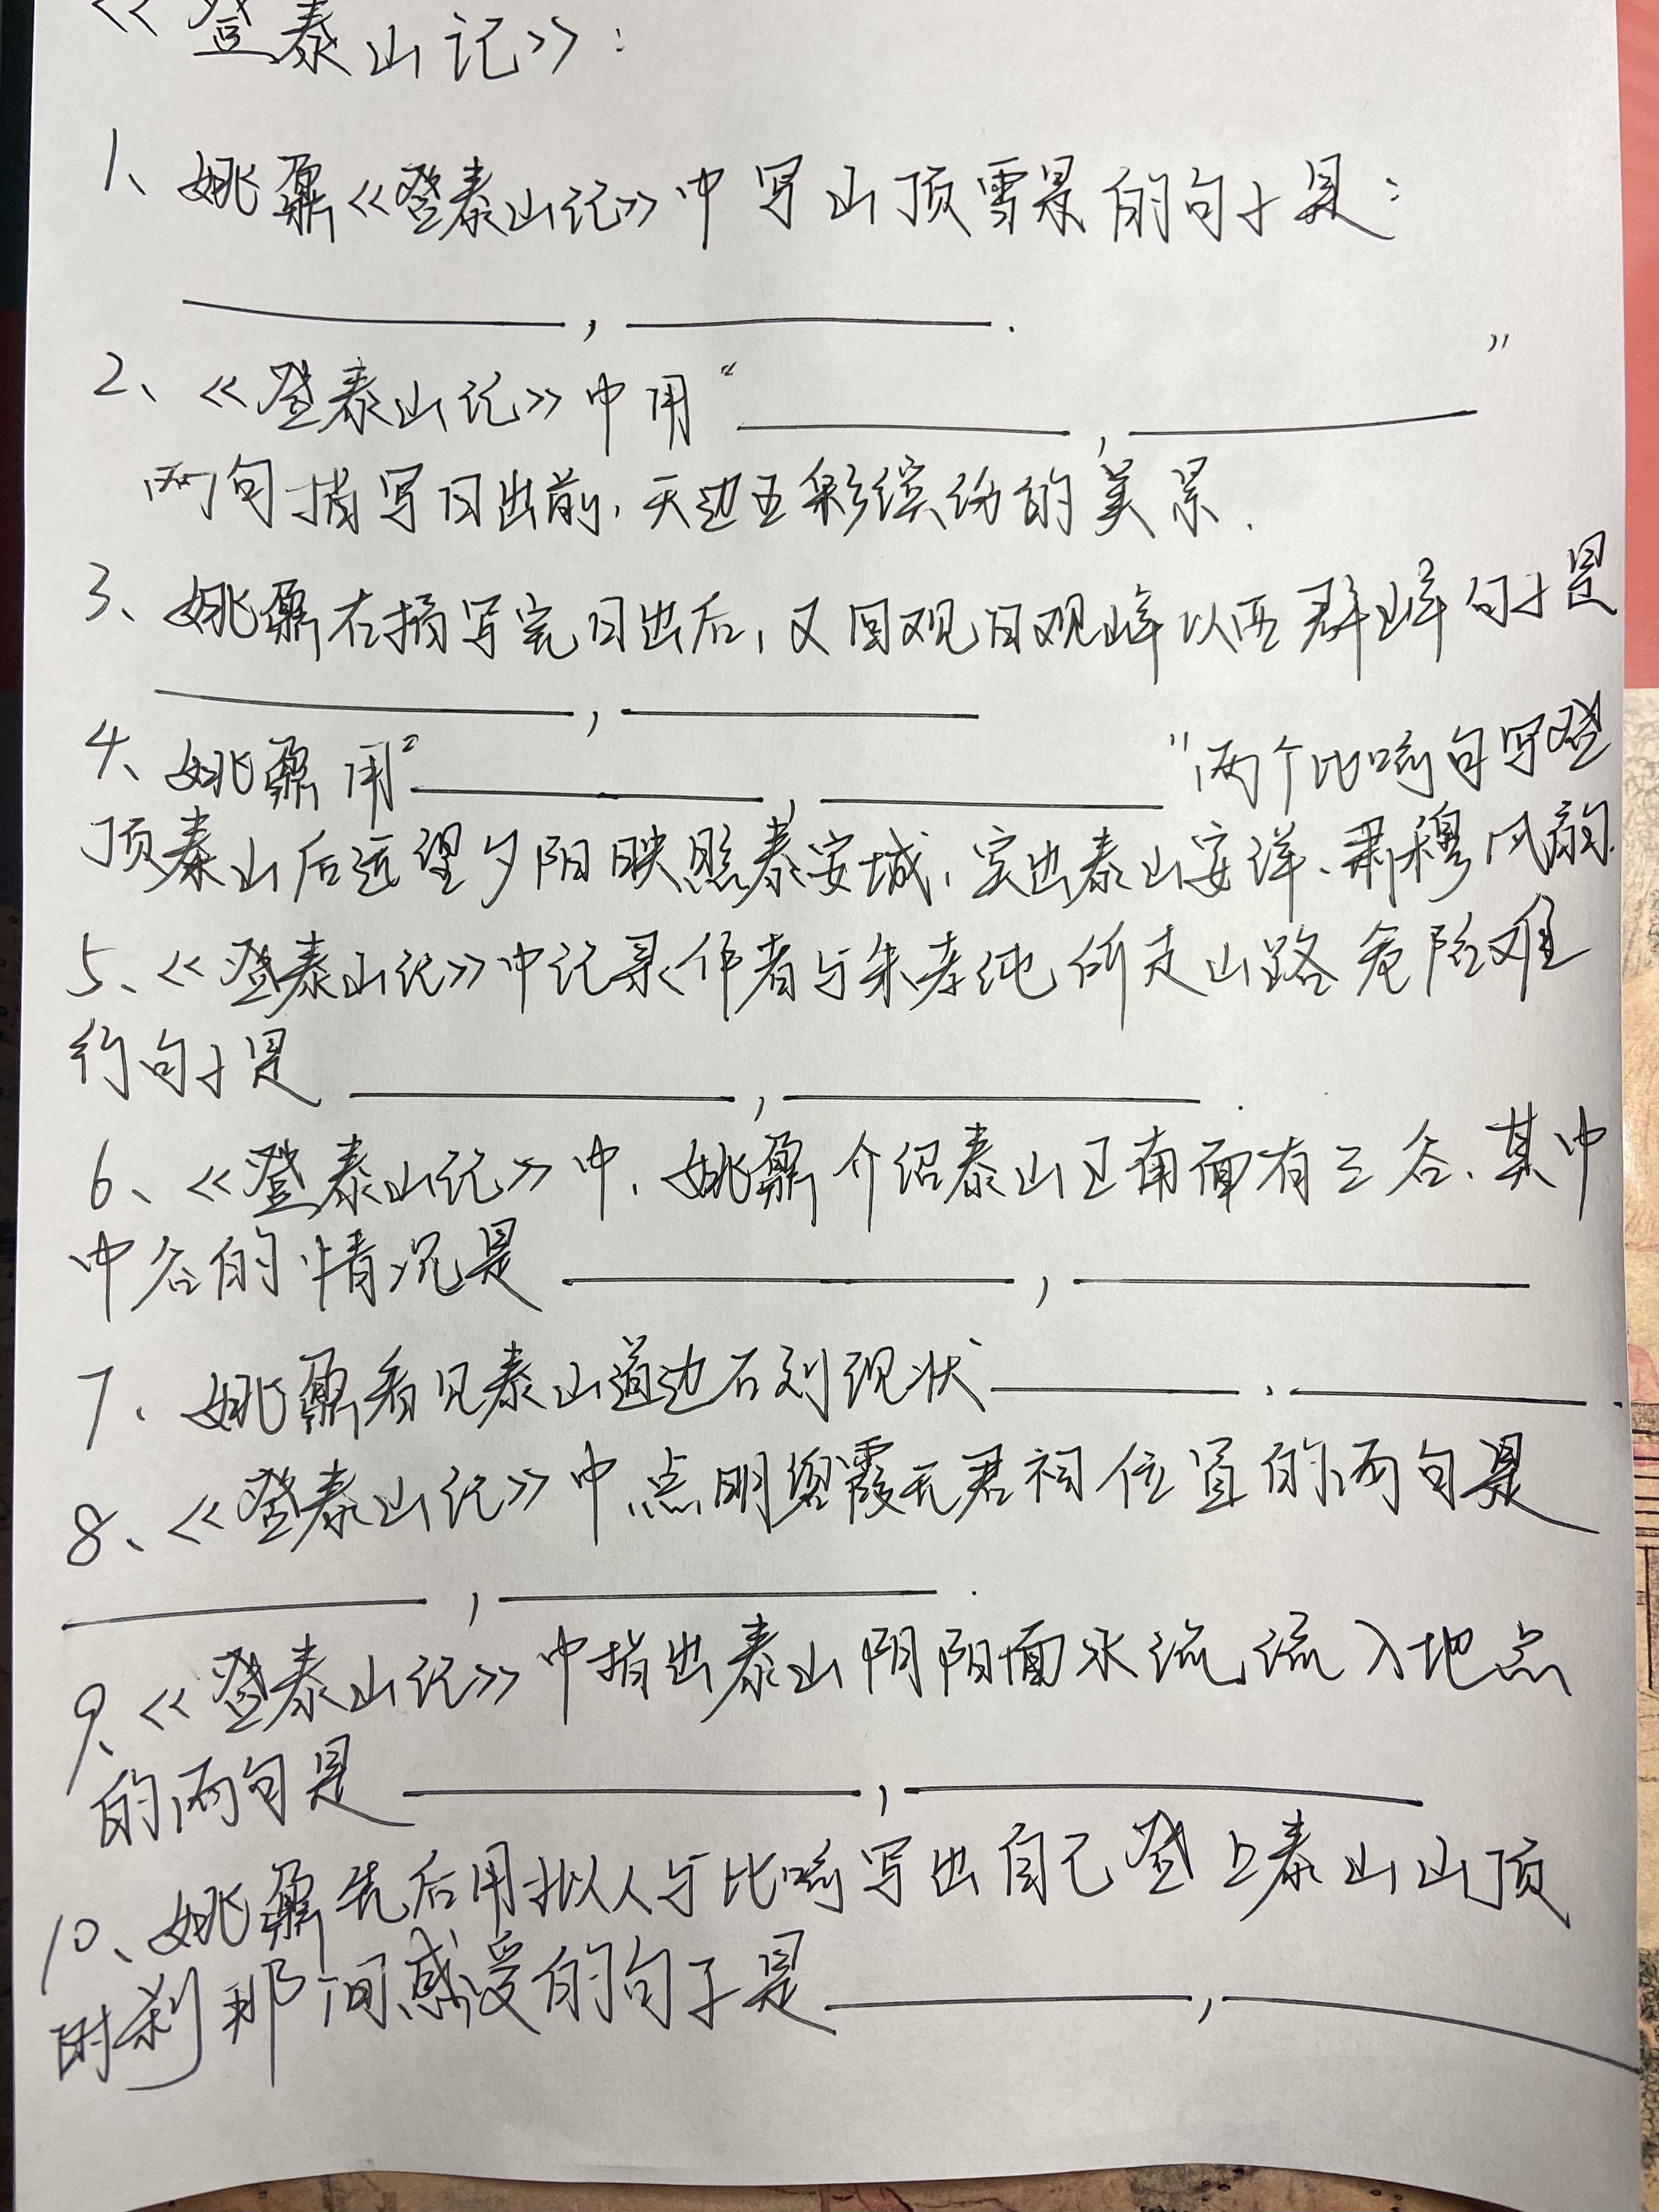 《登泰山记》:
1、姚鼐《登泰山记》中写山顶雪景的句子是:
________,________.
2、《登泰山记》中用“________,________”
两句描写日出前,天边五彩缤纷的美景.
3、姚鼐在描写完日出后,又回观日观峰以西群峰句子是
________,________
4、姚鼐用“________,________”两个比喻句写登
顶泰山后远望夕阳映照泰安城,突出泰山安详、肃穆风韵.
5、《登泰山记》中记录作者与朱孝纯所走山路危险难
行句子是________,________.
6、《登泰山记》中,姚鼐介绍泰山正南面有三谷,其中
中谷的情况是________,________
7、姚鼐看见泰山道边石刻现状________,________.
8、《登泰山记》中点明碧霞元君祠位置的两句是
________,________.
9、《登泰山记》中指出泰山阴阳面水流,流入地点
的两句是________,________
10、姚鼐先后用拟人与比喻写出自己登上泰山山顶
时刹那间感受的句子是________,________